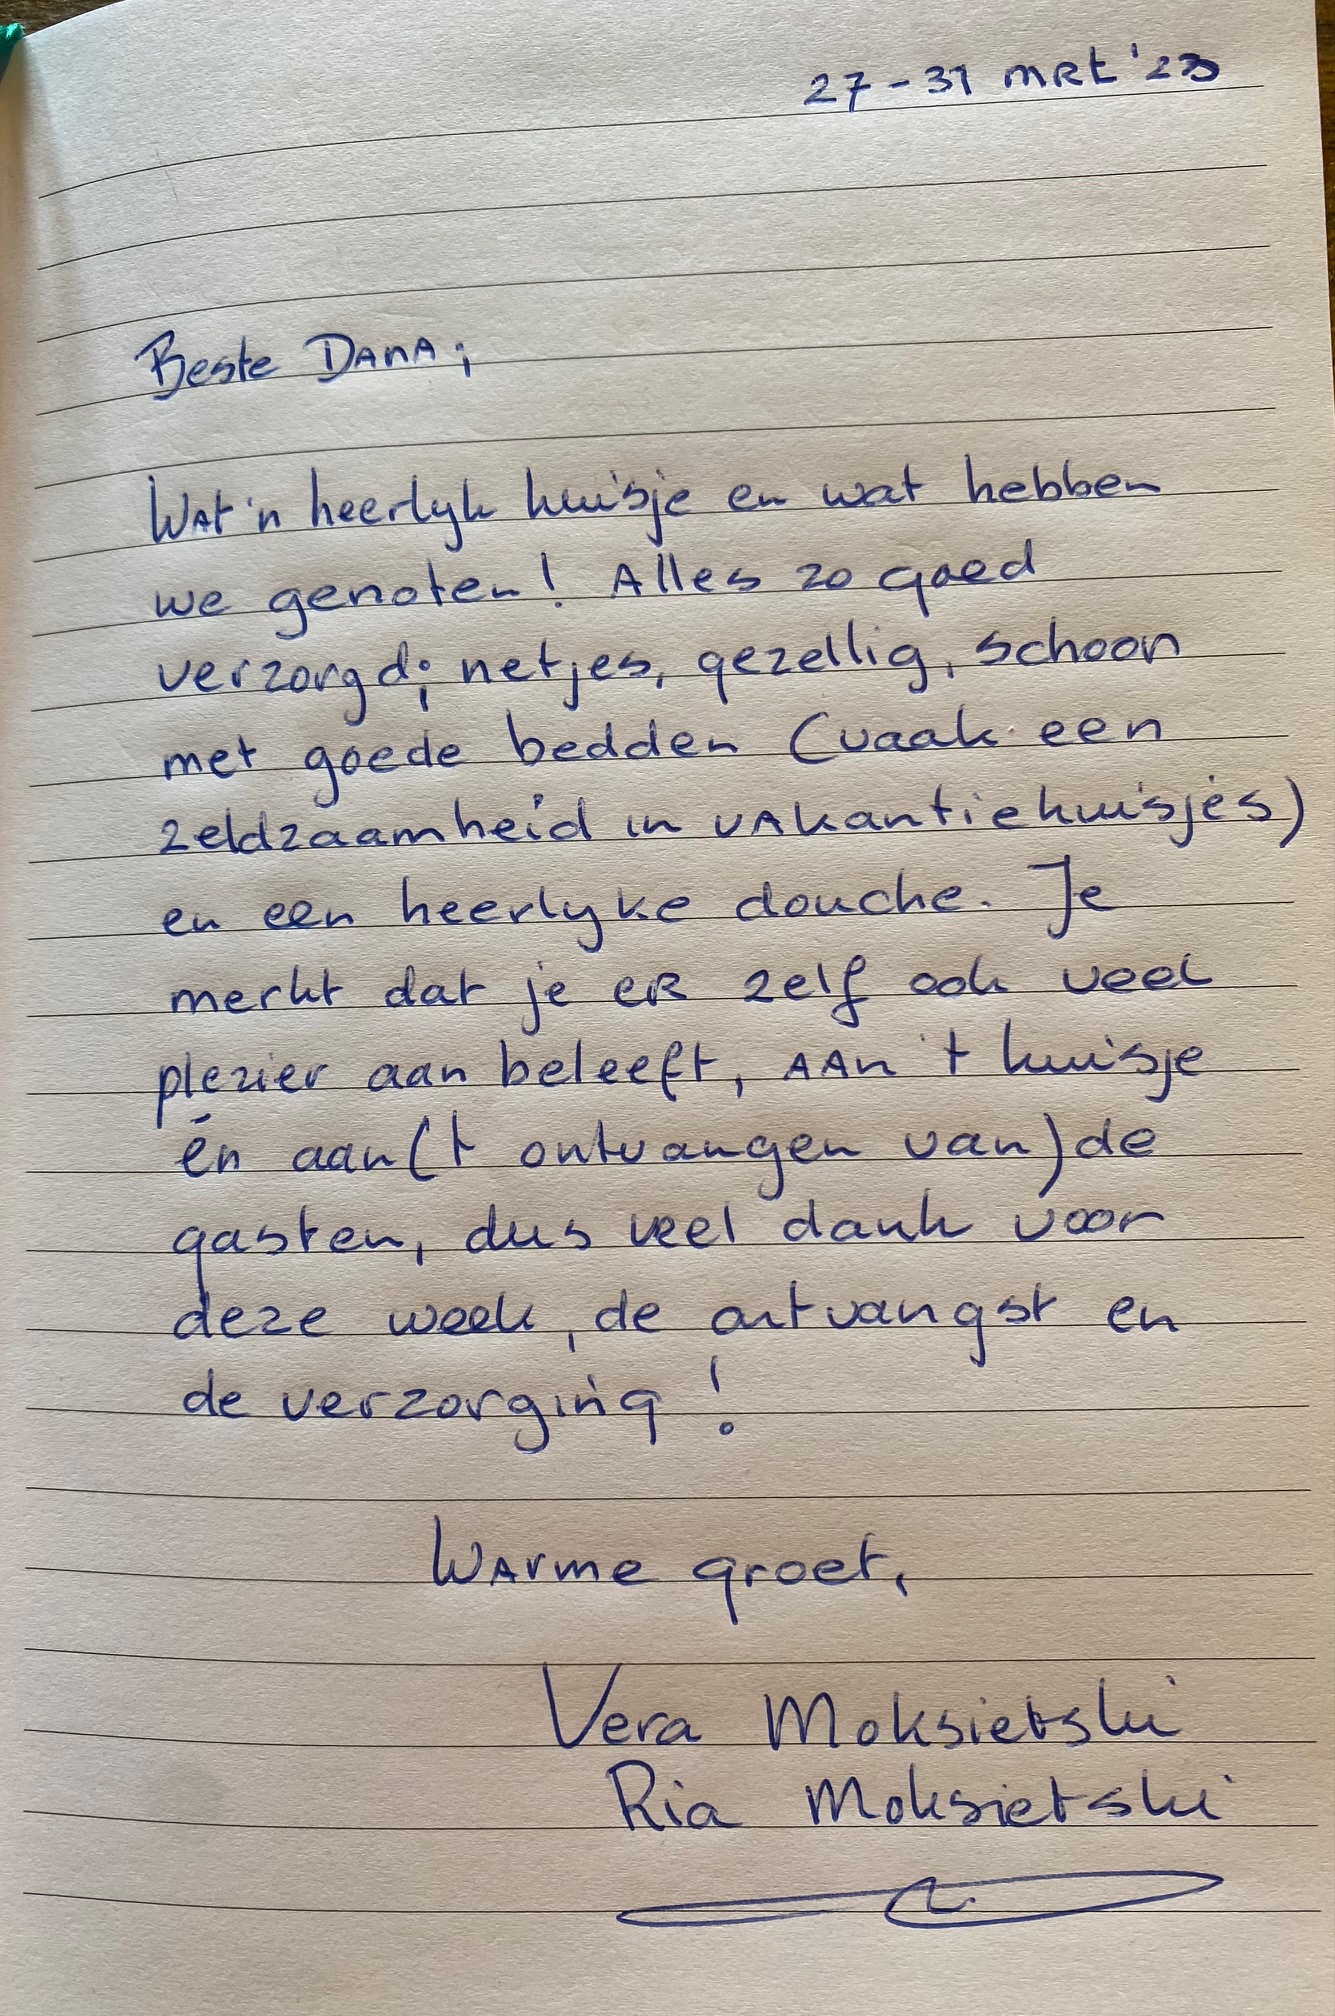 27-31 MRT '23
Beste DANA;
WAT 'n heerlyk huisje en wat hebben
we genoten! Alles zo goed
verzorgd; netjes, gezellig, schoon
met goede bedden (vaak een
zeldzaamheid in vakantiehuisjes)
en een heerlyke douche. Je
merkt dat je er zelf ook veel
plezier aan beleeft, AAN 't huisje
én aan ('t ontvangen van) de
gasten, dus veel dank voor
deze week, de ontvangst en
de verzorging!
Warme groet,
Vera Moksietski
Ria Moksietski